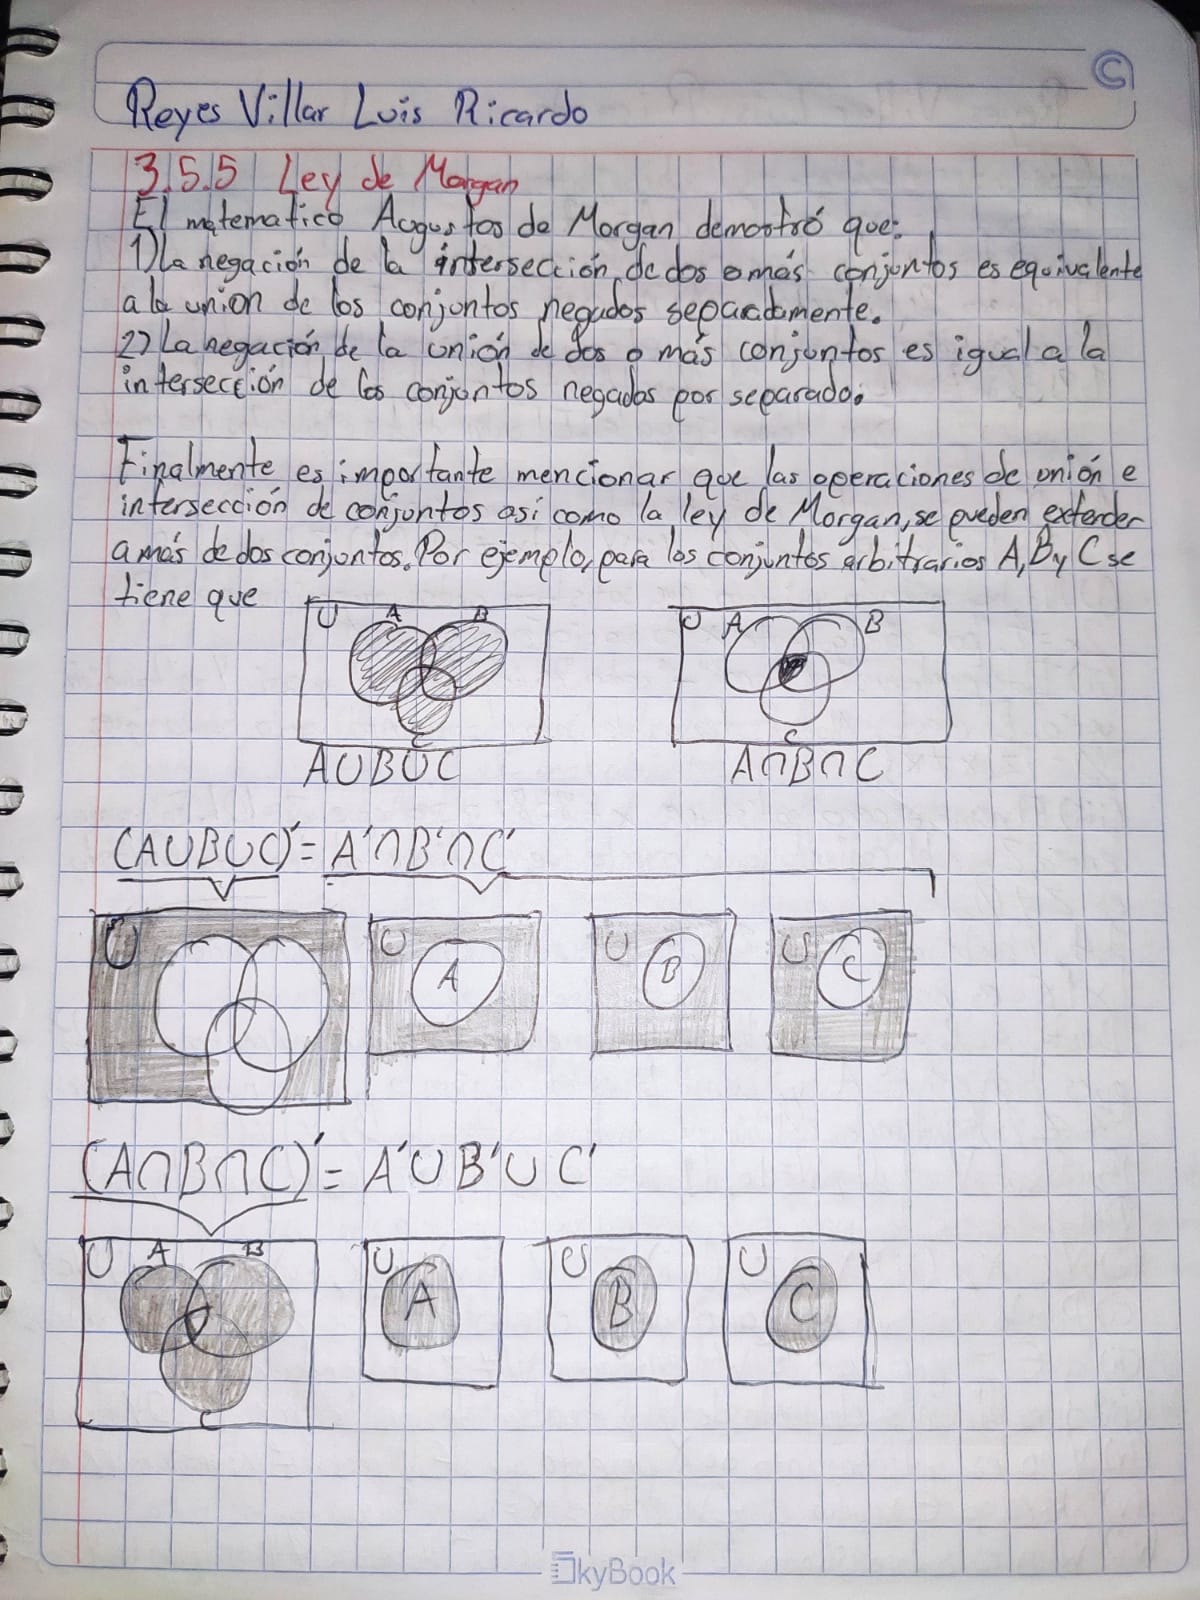 Reyes Villar Luis Ricardo
3.5.5 Ley de Morgan
El matematico Augustos de Morgan demostró que:
1) La negación de la intersección de dos o más conjuntos es equivalente
a la union de los conjuntos negados separadamente.
2) La negación de la unión de dos o más conjuntos es igual a la
intersección de los conjuntos negados por separado.
Finalmente es importante mencionar que las operaciones de unión e
intersección de conjuntos así como la ley de Morgan, se pueden extender
a más de dos conjuntos. Por ejemplo, para los conjuntos arbitrarios A, B y C se
tiene que
U A B U A B
C C
A∪B∪C A∩B∩C
(A∪B∪C)' = A'∩B'∩C'
U U A U B U C
(A∩B∩C)' = A'∪B'∪C'
U A B U A U B U C
C
SkyBook